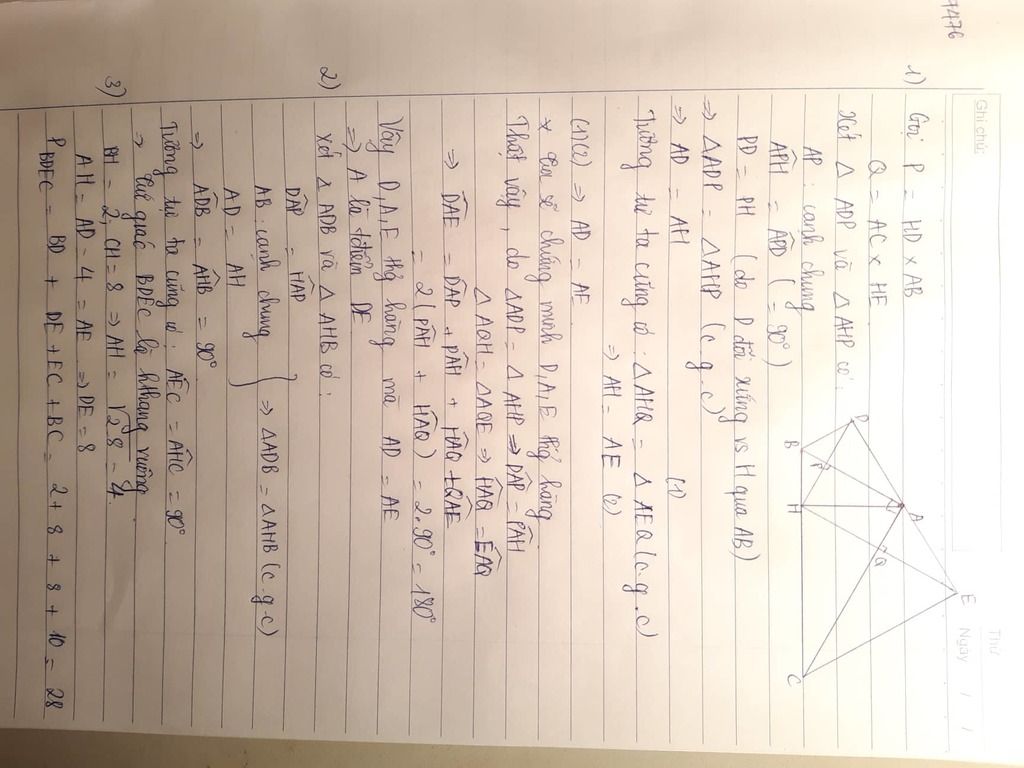 7476
Ghi chú:
Thứ
Ngày / /
1) Gọi P = HD x AB
Q = AC x HE
Xét Δ ADP và Δ AHP có:
AP: cạnh chung
APH = APD (= 90°)
PD = PH (do D đối xứng vs H qua AB)
⇒ ΔADP = ΔAHP (c.g.c)
⇒ AD = AH (1)
Tương tự ta cũng có: ΔAHQ = ΔAEQ (c.g.c)
⇒ AH = AE (2)
(1)(2) ⇒ AD = AE
* Ta sẽ chứng minh D, A, E thg hàng
Thật vậy, do ΔADP = ΔAHP ⇒ DAP = PAH
ΔAQH = ΔAQE ⇒ HAQ = EAQ
⇒ DAE = DAP + PAH + HAQ + QAE
= 2(PAH + HAQ) = 2.90° = 180°
Vậy D, A, E thg hàng mà AD = AE
⇒ A là tđiểm DE
2) Xét Δ ADB và ΔAHB có:
DAP = HAP
AB: cạnh chung } ⇒ ΔADB = ΔAHB (c.g.c)
AD = AH
⇒ ADB = AHB = 90°
Tương tự ta cũng có: AEC = AHC = 90°
⇒ tứ giác BDEC là hthang vuông
3) BH = 2, CH = 8 ⇒ AH = √2.8 = 4
AH = AD = 4 = AE ⇒ DE = 8
P BDEC = BD + DE + EC + BC = 2 + 8 + 8 + 10 = 28
D
B
P
H
A
Q
E
C